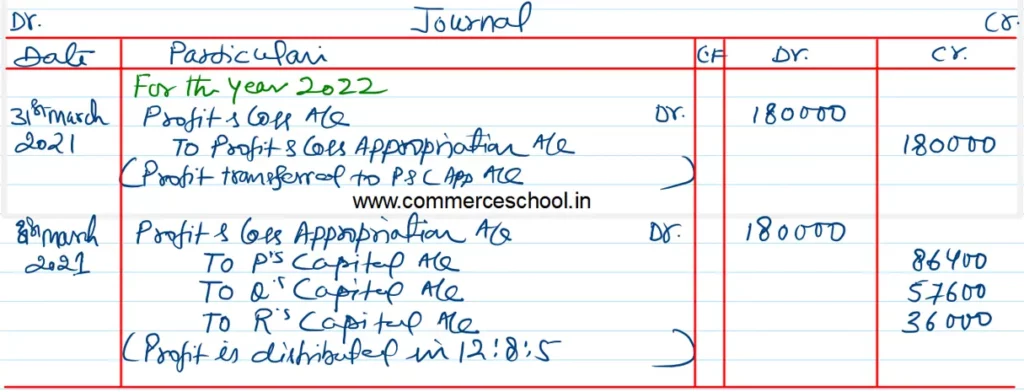 Dr. Journal Cr.
Date Particulars C.F Dr. Cr.
For the year 2022
31st March Profit & Loss A/c Dr. 180000
2021 To Profit & Loss Appropriation A/c 180000
(Profit transferred to P&L App A/c)
www.commerceschool.in
March Profit & Loss Appropriation A/c Dr. 180000
2021 To P's Capital A/c 86400
To Q's Capital A/c 57600
To R's Capital A/c 36000
(Profit is distributed in 12:8:5)